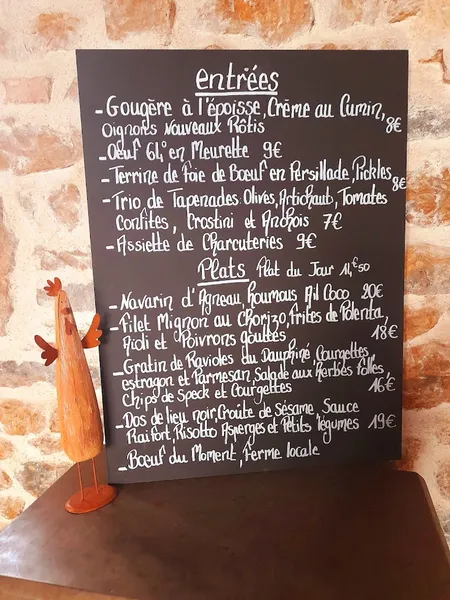 entrées
- Gougère à l'époisse, Crème au Cumin,
Oignons Nouveaux Rôtis 8€
- Oeuf 64° en Meurette 9€
- Terrine de Foie de Boeuf en Persillade, Pickles 8€
- Trio de Tapenades: Olives, Artichaut, Tomates
Confites, Crostini et Anchois 7€
- Assiette de Charcuteries 9€
Plats Plat du Jour 11,€50
- Navarin d'Agneau, houmous Ail Coco 20€
- Filet Mignon au Chorizo, Frites de Polenta,
Aïoli et Poivrons gouttes 18€
- Gratin de Ravioles du Dauphiné Courgettes,
estragon et Parmesan, Salade aux herbes folles,
Chips de Speck et Courgettes 16€
- Dos de lieu noir, Croûte de Sésame, Sauce
Raifort, Risotto Asperges et Petits légumes 19€
- Boeuf du Moment, Ferme locale